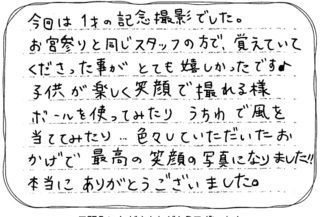 今回は1才の記念撮影でした。
お宮参りと同じスタッフの方で、覚えていて
くださった事が とても嬉しかったです♪
子供が楽しく笑顔で撮れる様
ボールを使ってみたり うちわで風を
当ててみたり… 色々していただいたお
かげで 最高の笑顔の写真になりました!!
本当に ありがとうございました。